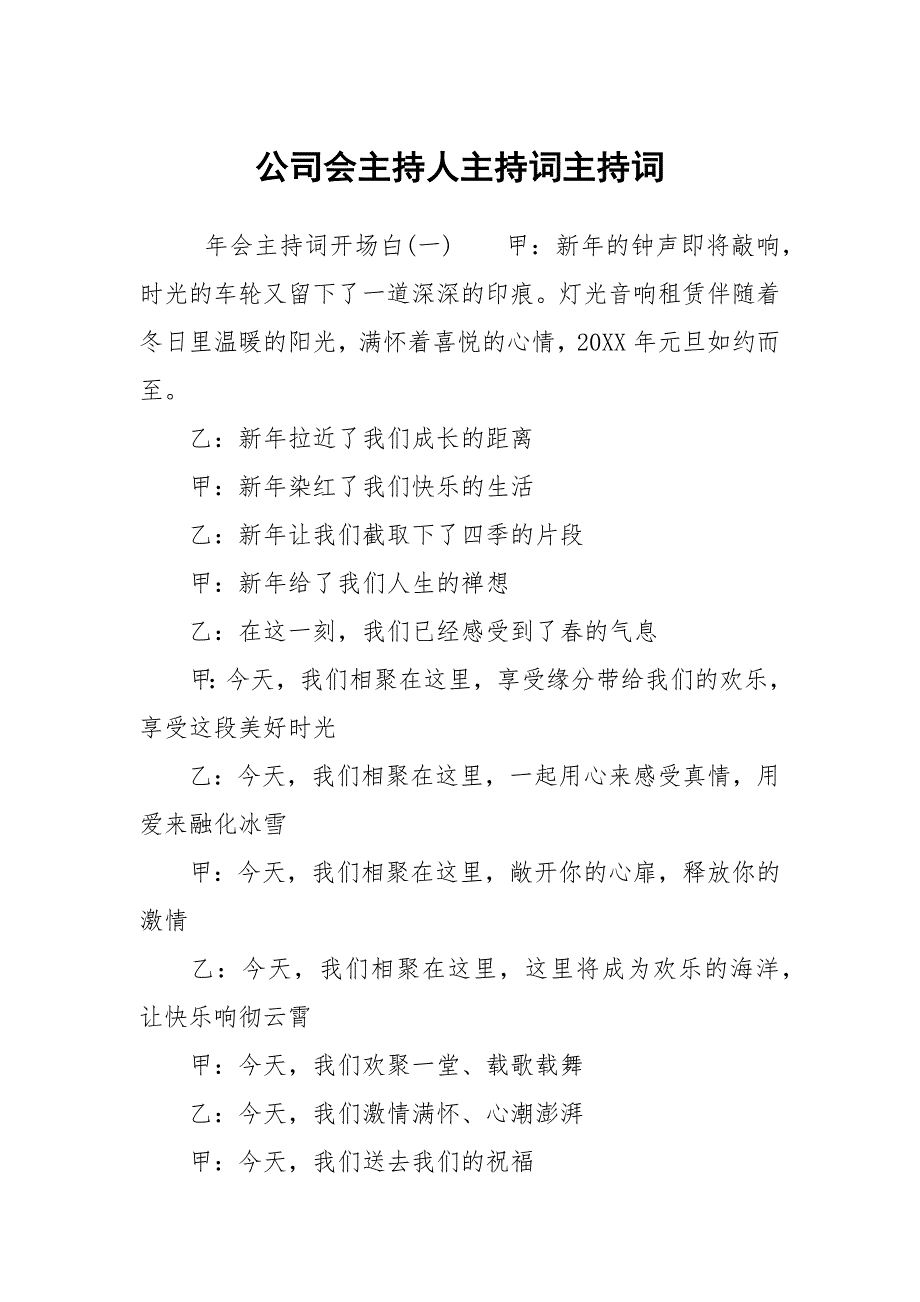 公司会主持人主持词主持词
年会主持词开场白(一)　　甲：新年的钟声即将敲响，
时光的车轮又留下了一道深深的印痕。灯光音响租赁伴随着
冬日里温暖的阳光，满怀着喜悦的心情，20XX 年元旦如约而
至。
乙：新年拉近了我们成长的距离
甲：新年染红了我们快乐的生活
乙：新年让我们截取下了四季的片段
甲：新年给了我们人生的禅想
乙：在这一刻，我们已经感受到了春的气息
甲：今天，我们相聚在这里，享受缘分带给我们的欢乐，
享受这段美好时光
乙：今天，我们相聚在这里，一起用心来感受真情，用
爱来融化冰雪
甲：今天，我们相聚在这里，敞开你的心扉，释放你的
激情
乙：今天，我们相聚在这里，这里将成为欢乐的海洋，
让快乐响彻云霄
甲：今天，我们欢聚一堂、载歌载舞
乙：今天，我们激情满怀、心潮澎湃
甲：今天，我们送去我们的祝福